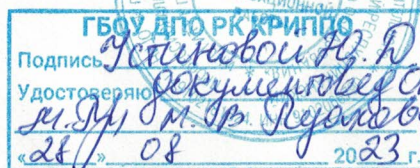 ГБОУ ДПО РК КРИППО
Подпись Устиновой Ю.Д
Удостоверяю документовед
М.В
«28» 08 2023